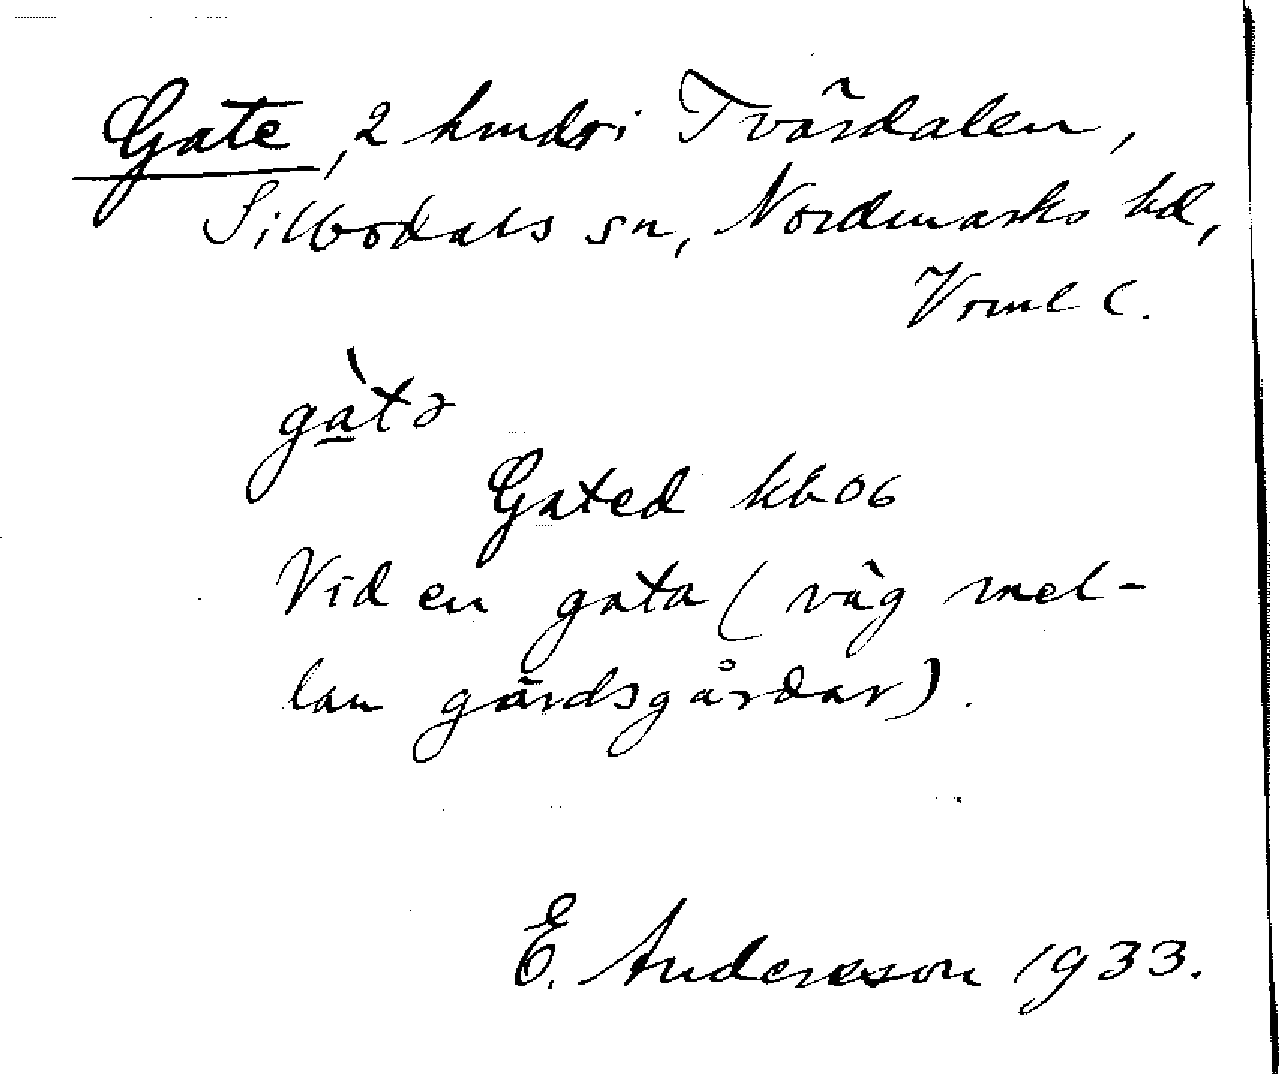 Gate, 2 hmdr i Tvärdalen,
Silbodals sn, Nordmarks hd,
Vrml C.
gàtə
Gated kb 06
Vid en gata (väg mel-
lan gärdsgårdar).
E. Andersson 1933.